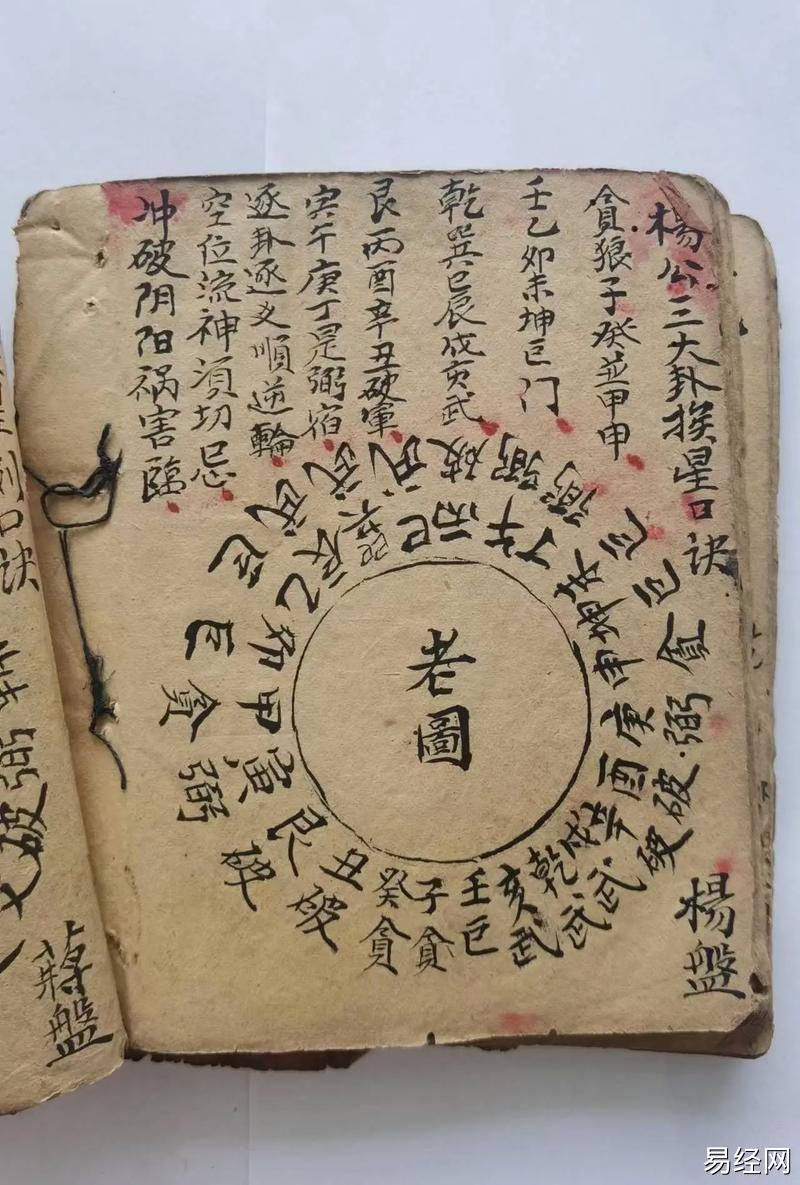 楊公三大卦挨星口诀
貪狼子癸並甲申
壬乙卯未坤巨门
乾巽巳辰戌亥武
艮丙酉辛丑破軍
寅午庚丁是弼宿
逐卦逐爻順逆輪
空位流神須切忌
冲破阴阳祸害臨
老圖
壬子癸丑艮寅甲卯乙辰巽巳丙午丁未坤申庚酉辛戌乾亥
巨貪貪破破弼貪巨巨武武武破弼弼巨巨貪弼破破武武武
楊盤
口诀
破弼
蔣盤
易经网